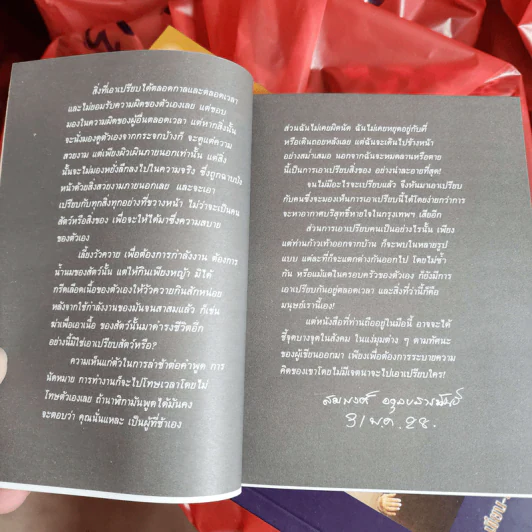 สิ่งที่เอาเปรียบได้ตลอดกาลและตลอดเวลา
และไม่ยอมรับความผิดของตัวเองเลย แต่ชอบ
มองในความผิดของผู้อื่นตลอดเวลา แต่หากสิ่งนั้น
จะนั่งมองดูตัวเองจากกระจกบ้างก็ จะดูแต่ความ
สวยงาม แต่เพียงผิวเผินภายนอกเท่านั้น แต่สิ่ง
นั้นจะไม่มองหยั่งลึกลงไปในความจริง ซึ่งถูกฉาบบัง
หน้าด้วยสิ่งสวยงามภายนอกเลย และจะเอา
เปรียบกับทุกสิ่งทุกอย่างที่ขวางหน้า ไม่ว่าจะเป็นคน
สัตว์หรือสิ่งของ เพื่อจะให้ได้มาซึ่งความสบาย
ของตัวเอง
เลี้ยงวัวควาย เพื่อต้องการกำลังงาน ต้องการ
น้ำนมของสัตว์นั้น แต่ให้กินเพียงหญ้า มิได้
กรีดเลือดเนื้อของตัวเองให้วัวควายกินสักหน่อย
หลังจากใช้กำลังงานของมันจนสาสมแล้ว ก็เข่น
ฆ่าเพื่อเอาเนื้อ ของสัตว์นั้นมาดำรงชีวิตอีก
อย่างนี้มิใช่เอาเปรียบสัตว์หรือ?
ความเห็นแก่ตัวในการล่าช้าต่อคำพูด การ
นัดหมาย การทำงานก็จะไปโทษเวลาโดยไม่
โทษตัวเองเลย ถ้านาฬิกามันพูดได้มันคง
จะตอบว่า คุณนั่นแหละ เป็นผู้ที่ช้าเอง
ส่วนฉันไม่เคยผิดนัด ฉันไม่เคยหยุดอยู่กับที่
หรือเดินถอยหลังเลย แต่ฉันจะเดินไปข้างหน้า
อย่างสม่ำเสมอ นอกจากฉันจะหมดลานหรือตาย
นี่เป็นการเอาเปรียบสิ่งของ อย่างน่าละอายที่สุด!
จนไม่มีอะไรจะเปรียบแล้ว จึงหันมาเอาเปรียบ
กับคนซึ่งจะมองเห็นการเอาเปรียบนี้ได้โดยง่ายกว่าการ
จะหาอากาศบริสุทธิ์หายใจในกรุงเทพฯ เสียอีก
ส่วนการเอาเปรียบคนเป็นอย่างไรนั้น เพียง
แต่ท่านก้าวเท้าออกจากบ้าน ก็จะพบในหลายรูป
แบบ แต่ละที่ก็จะแตกต่างกันออกไป โดยไม่ซ้ำ
กัน หรือแม้แต่ในครอบครัวของตัวเอง ก็ยังมีการ
เอาเปรียบกันอยู่ตลอดเวลา และสิ่งที่ว่านี้ก็คือ
มนุษย์เรานี้เอง!
แต่หนังสือที่ท่านถืออยู่ในมือนี้ อาจจะได้
ชี้จุดบางจุดในสังคม ในแง่มุมต่าง ๆ ตามทัศนะ
ของผู้เขียนออกมา เพียงเพื่อต้องการระบายความ
คิดของเขาโดยไม่มีเจตนาจะไปเอาเปรียบใคร!
31 พ.ค. 28.